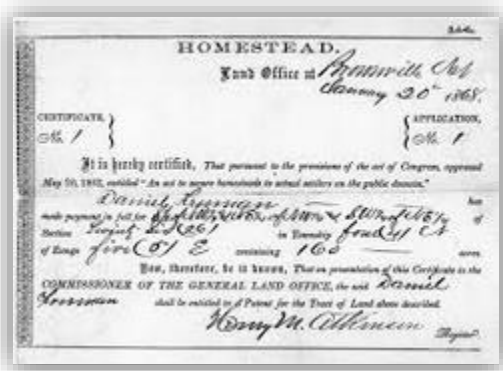 HOMESTEAD.
Land Office at Brownville Neb
January 20th 1868.
CERTIFICATE,
No. 1
APPLICATION,
No. 1
It is hereby certified, That pursuant to the provisions of the act of Congress, approved
May 20, 1862, entitled "An act to secure homesteads to actual settlers on the public domain."
Daniel Freeman has
made payment in full for of
Section (26) in Township four (4) N
of Range five (5) E containing 160 acres
Now, therefore, be it known, That on presentation of this Certificate to the
COMMISSIONER OF THE GENERAL LAND OFFICE, the said Daniel
Freeman shall be entitled to a Patent for the Tract of Land above described.
Henry M. Atkinson
Register.